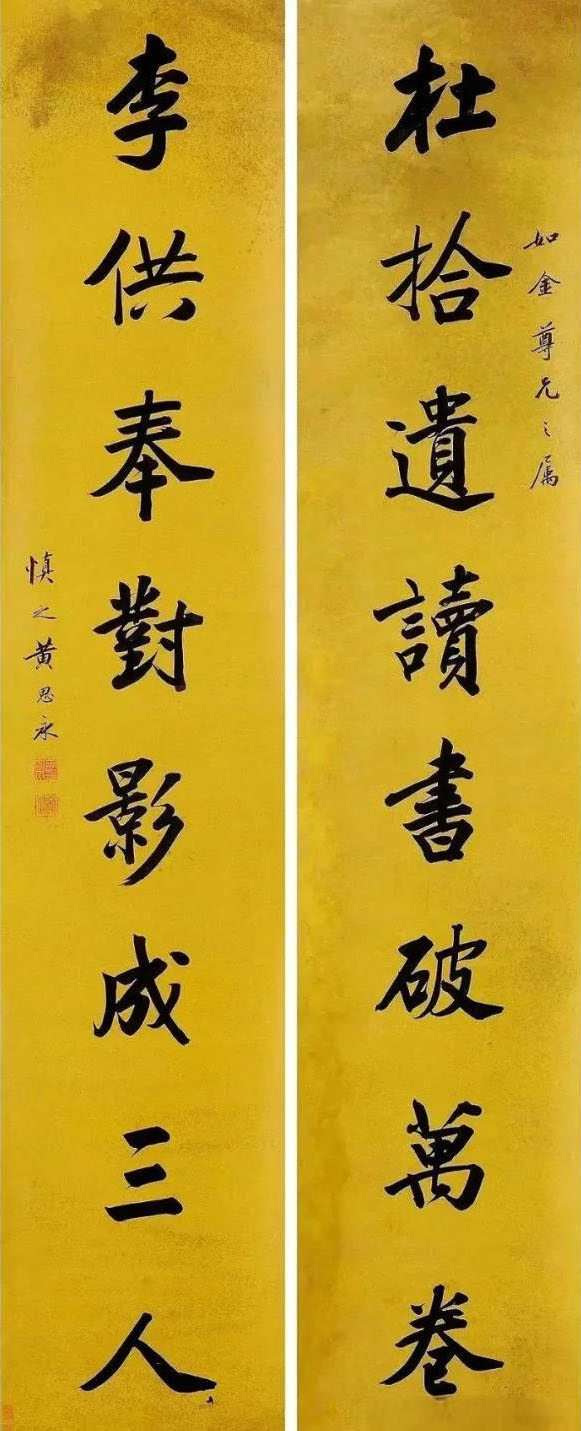 杜拾遺讀書破萬卷
如金尊兄之属
李供奉對影成三人
慎之黄思永